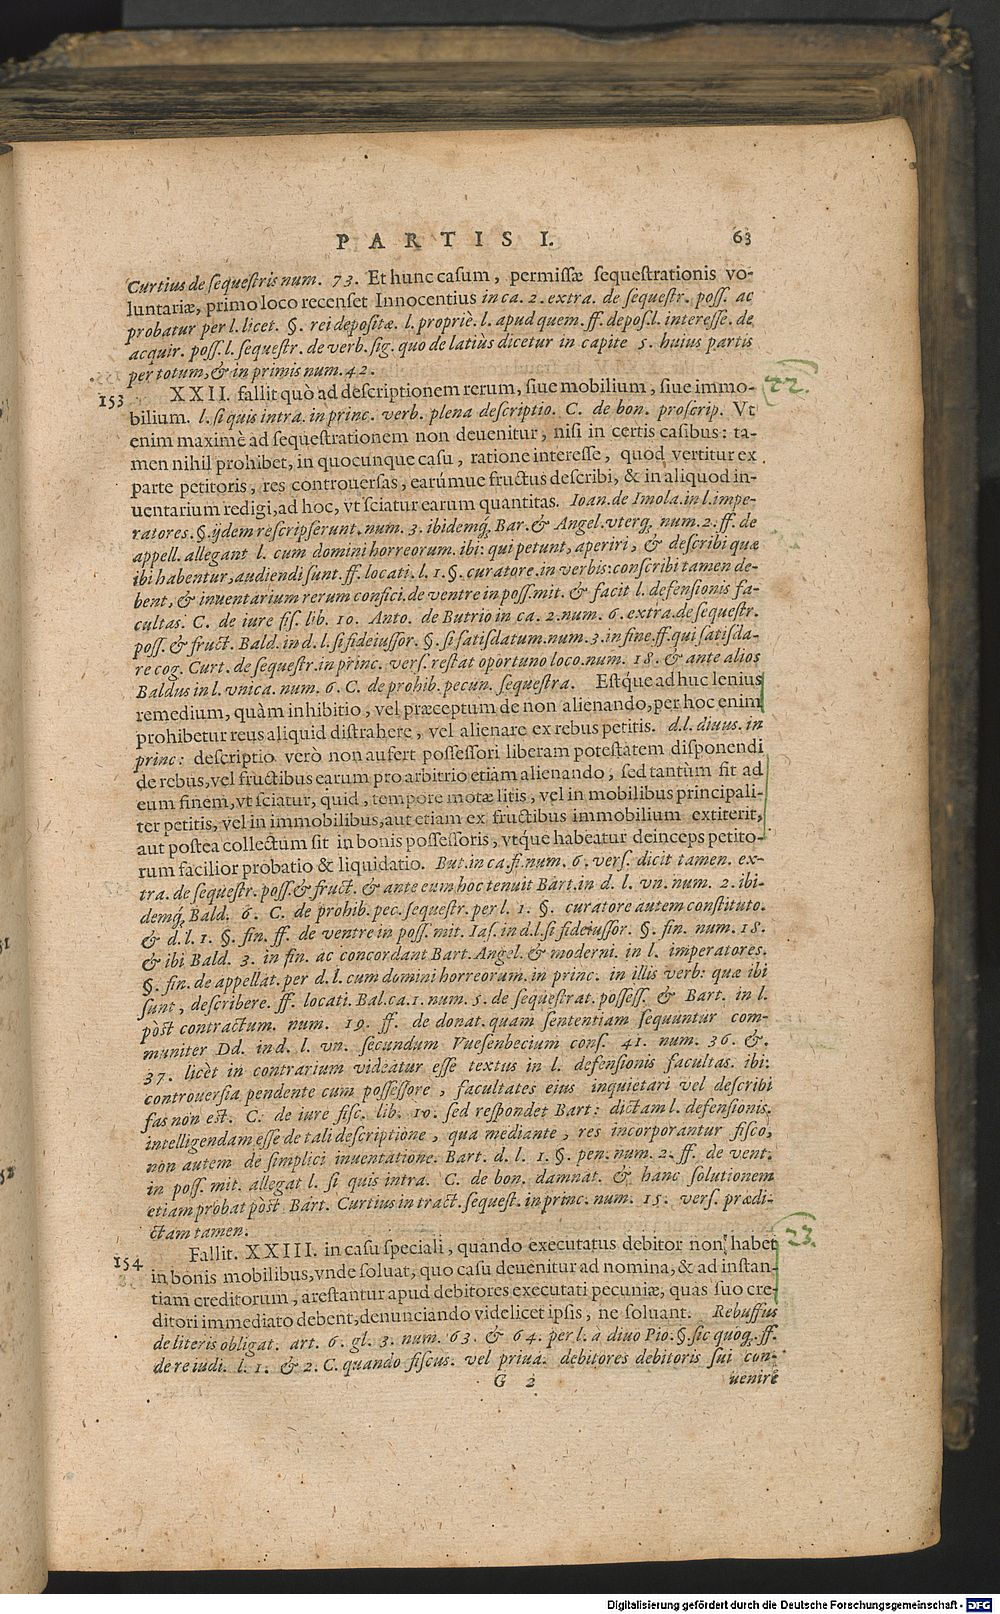 PARTIS I. 63
Curtius de sequestris num. 73. Et hunc casum, permissæ sequestrationis vo-
luntariæ, primo loco recenset Innocentius in ca. 2. extra. de sequestr. poss. ac
probatur per l. licet. §. rei depositæ. l. propriè. l. apud quem. ff. depos. l. interesse. de
acquir. poss. l. sequestr. de verb. sig. quo de latiùs dicetur in capite 5. huius partis
per totum, & in primis num. 42.
153 XXII. fallit quò ad descriptionem rerum, siue mobilium, siue immo- 22.
bilium. l. si quis intra. in princ. verb. plena descriptio. C. de bon. proscrip. Vt
enim maximè ad sequestrationem non deuenitur, nisi in certis casibus: ta-
men nihil prohibet, in quocunque casu, ratione interesse, quod vertitur ex
parte petitoris, res controuersas, earúmue fructus describi, & in aliquod in-
uentarium redigi, ad hoc, vt sciatur earum quantitas. Ioan. de Imola. in l. impe-
ratores. §. ijdem rescripserunt. num. 3. ibidemq́; Bar. & Angel. vterq; num. 2. ff. de
appell. allegant l. cum domini horreorum. ibi: qui petunt, aperiri, & describi quæ
ibi habentur, audiendi sunt. ff. locati. l. 1. §. curatore. in verbis: conscribi tamen de-
bent, & inuentarium rerum confici. de ventre in poss. mit. & facit l. defensionis fa-
cultas. C. de iure fis. lib. 10. Anto. de Butrio in ca. 2. num. 6. extra. de sequestr.
poss. & fruct. Bald. in d. l. si fideiussor. §. si satisdatum. num. 3. in fine. ff. qui satisda-
re cog. Curt. de sequestr. in princ. vers. restat oportuno loco. num. 18. & ante alios
Baldus in l. vnica. num. 6. C. de prohib. pecun. sequestra. Estq́ue adhuc lenius
remedium, quàm inhibitio, vel præceptum de non alienando, per hoc enim
prohibetur reus aliquid distrahere, vel alienare ex rebus petitis. d. l. diuus. in
princ: descriptio verò non aufert possessori liberam potestatem disponendi
de rebus, vel fructibus earum pro arbitrio etiam alienando, sed tantùm fit ad
eum finem, vt sciatur, quid, tempore motæ litis, vel in mobilibus principali-
ter petitis, vel in immobilibus, aut etiam ex fructibus immobilium extiterit,
aut postea collectum sit in bonis possessoris, vtq́ue habeatur deinceps petito-
rum facilior probatio & liquidatio. But. in ca. fi. num. 6. vers. dicit tamen. ex-
tra. de sequestr. poss. & fruct. & ante eum hoc tenuit Bart. in d. l. vn. num. 2. ibi-
demq́; Bald. 6. C. de prohib. pec. sequestr. per l. 1. §. curatore autem constituto.
& d. l. 1. §. fin. ff. de ventre in poss. mit. Ias. in d. l. si fideiussor. §. fin. num. 18.
& ibi Bald. 3. in fin. ac concordant Bart. Angel. & moderni. in l. imperatores.
§. fin. de appellat. per d. l. cum domini horreorum. in princ. in illis verb: quæ ibi
sunt, describere. ff. locati. Bal. ca. 1. num. 5. de sequestrat. possess. & Bart. in l.
pòst contractum. num. 19. ff. de donat. quam sententiam sequuntur com-
muniter Dd. in d. l. vn. secundum Vuesenbecium cons. 41. num. 36. &.
37. licèt in contrarium videatur esse textus in l. defensionis facultas. ibi:
controuersia pendente cum possessore, facultates eius inquietari vel describi
fas non est. C. de iure fisc. lib. 10. sed respondet Bart: dictam l. defensionis.
intelligendam esse de tali descriptione, qua mediante, res incorporantur fisco,
non autem de simplici inuentatione. Bart. d. l. 1. §. pen. num. 2. ff. de vent.
in poss. mit. allegat l. si quis intra. C. de bon. damnat. & hanc solutionem
etiam probat pòst Bart. Curtius in tract. sequest. in princ. num. 15. vers. prædi-
ctam tamen.
154 Fallit. XXIII. in casu speciali, quando executatus debitor non habet 23.
in bonis mobilibus, vnde soluat, quo casu deuenitur ad nomina, & ad instan-
tiam creditorum, arestantur apud debitores executati pecuniæ, quas suo cre-
ditori immediato debent, denunciando videlicet ipsis, ne soluant. Rebuffus
de literis obligat. art. 6. gl. 3. num. 63. & 64. per l. à diuo Pio. §. sic quoq; ff.
de re iudi. l. 1. & 2. C. quando fiscus. vel priua. debitores debitoris sui con-
G 2 uenire
Digitalisierung gefördert durch die Deutsche Forschungsgemeinschaft - DFG